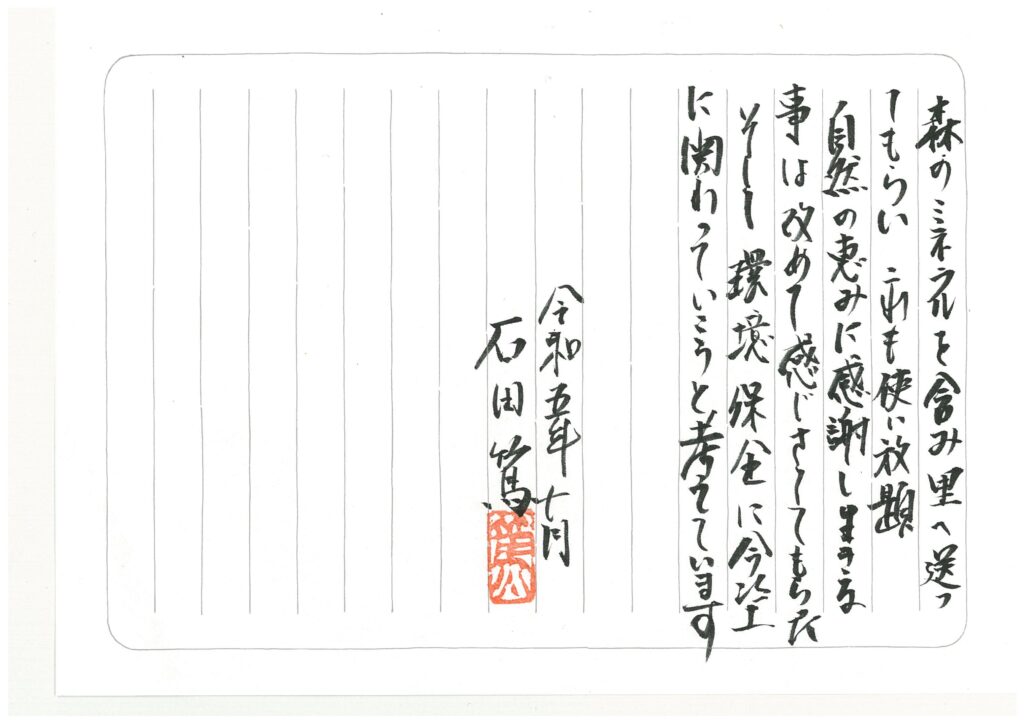 森のミネラルを含み里へ送っ
てもらい これも使い放題
自然の恵みに感謝します
事は改めて感じさせてもらった
そして 環境保全に今
に関わっていこうと考えています
令和五年十月
石田篤